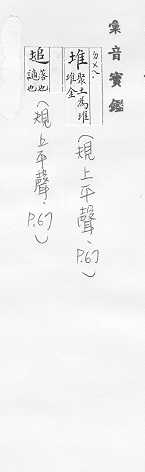 彙音寶鑑
ㄉㄨㄟ
堆 聚土為堆 堆金
(規上平聲、P.67)
追 落也 遠也
(規上平聲、P.67)